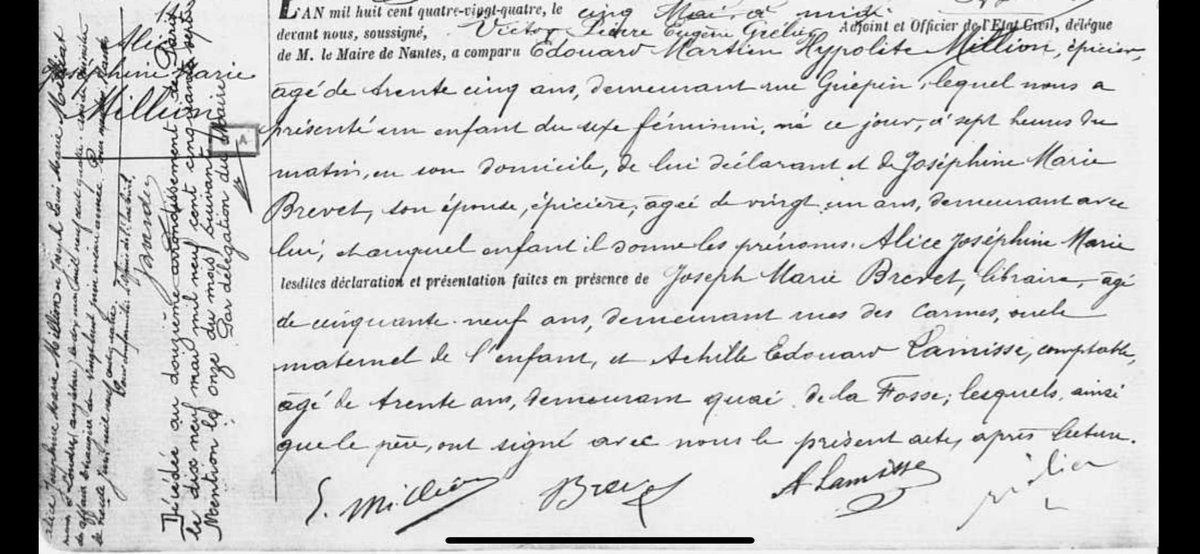 L'AN mil huit cent quatre-vingt-quatre, le cinq Mai, à midi
devant nous, soussigné, Victor Eugène Adjoint et Officier de l'Etat Civil, délégué
de M. le Maire de Nantes, a comparu Edouard Martin Hypolite Million, épicier,
âgé de trente cinq ans, demeurant rue Guépin, lequel nous a
présenté un enfant du sexe féminin, né ce jour, à sept heures du
matin, en son domicile, de lui déclarant et de Joséphine Marie
Brevet, son épouse, épicière, âgée de vingt un ans, demeurant avec
lui, et auquel enfant il donne les prénoms Alice Joséphine Marie
lesdites déclaration et présentation faites en présence de Joseph Marie Brevet, libraire, âgé
de cinquante-neuf ans, demeurant rue des Carmes, oncle
maternel de l'enfant, et Achille Edouard Lamisse, comptable,
âgé de trente ans, demeurant quai de la Fosse, lesquels, ainsi
que le père, ont signé avec nous le présent acte, après lecture.
E. Million Brevet A Lamisse
Joséphine Marie
Million
Décédée au douzième arrondissement de Paris
le dix neuf mai mil neuf cent cinquante sept
Mention le onze du mois suivant
Par délégation du Maire